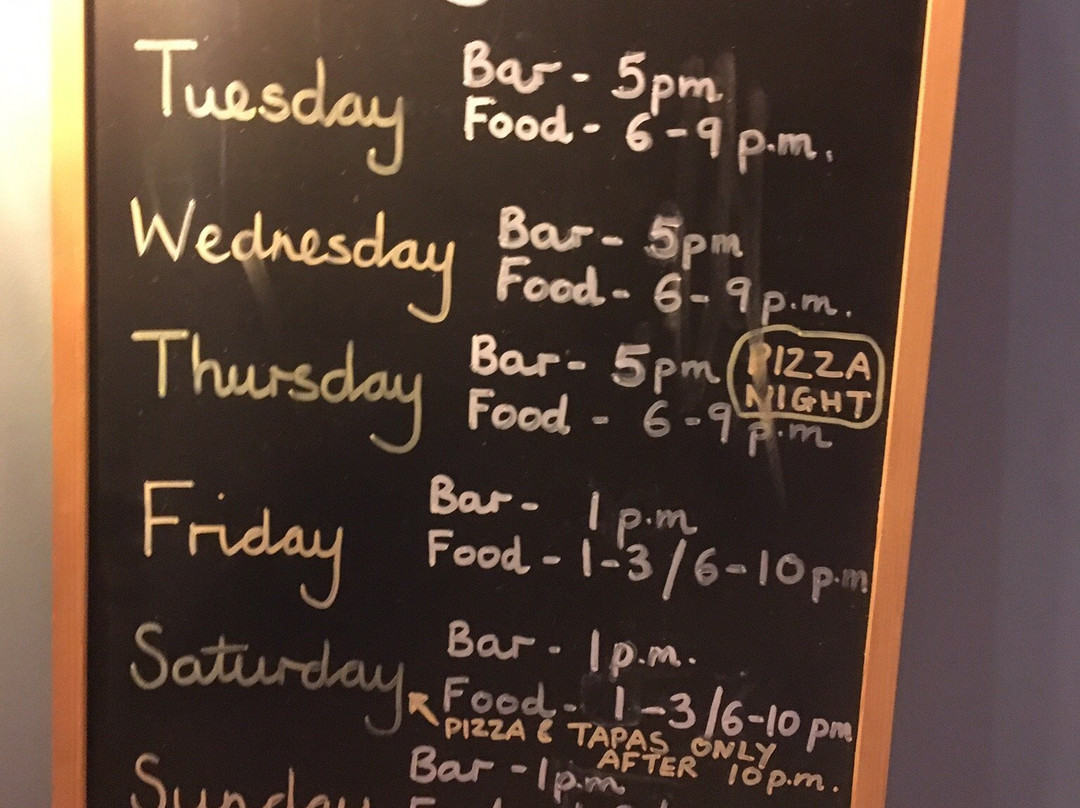 Tuesday Bar - 5pm
Food - 6-9 p.m.
Wednesday Bar - 5pm
Food - 6-9 p.m.
Thursday Bar - 5pm PIZZA
NIGHT
Food - 6-9 p.m
Friday Bar - 1 p.m
Food - 1-3/6-10 p.m
Saturday Bar - 1 p.m.
Food - 1-3/6-10 pm
PIZZA & TAPAS ONLY
AFTER 10 p.m.
Sunday Bar - 1p.m